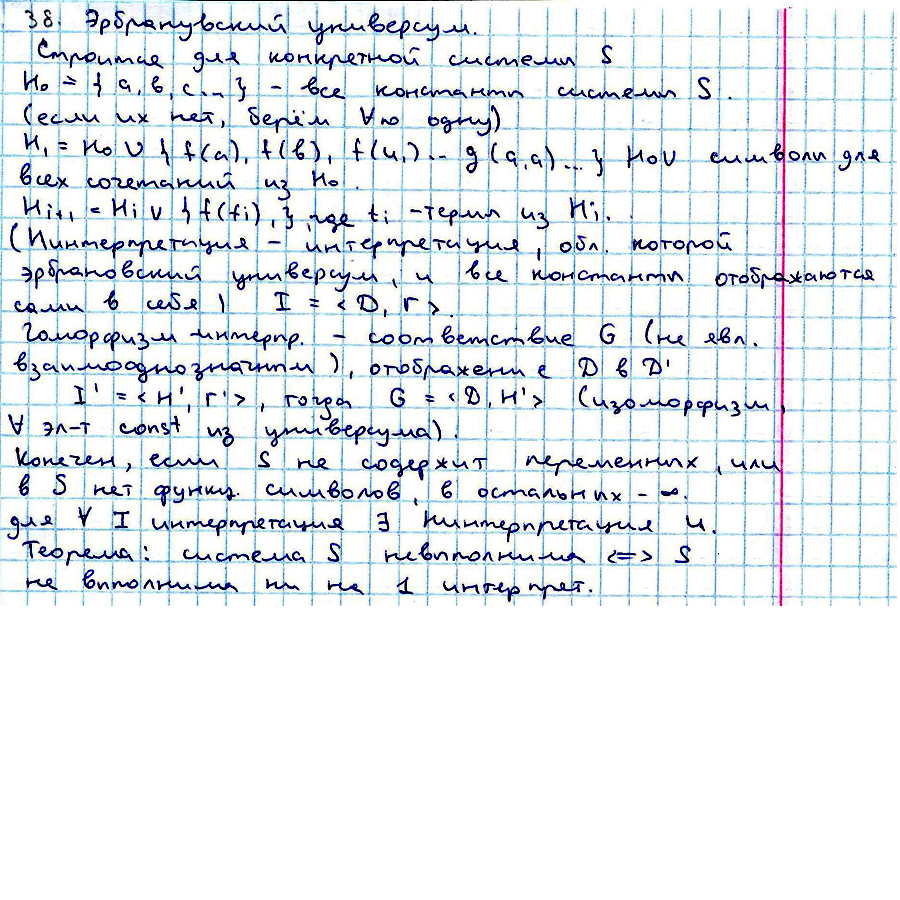 38. Эрбранувский универсум.
Строится для конкретной системы S
H₀ = { a, в, c ... } - все константы системы S.
(если их нет, берём ∀ю одну)
H₁ = H₀ ∪ { f(a), f(в), f(u,) ... g(a,a) ... } H₀∪ символы для
всех сочетаний из H₀.
Hᵢ₊₁ = Hᵢ ∪ { f(fi), }, где tᵢ - термы из Hᵢ.
(Hинтерпретация - интерпретация, обл. которой
эрбрановский универсум, и все константы отображаются
сами в себя) I = <D, r>.
Гоморфизм интерпр. - соответствие G (не явл.
взаимооднозначным), отображение D в D'
I' = <H', r'>, тогда G = <D, H'> (изоморфизм,
∀ эл-т const из универсума).
Конечен, если S не содержит переменных, или
в S нет функц. символов, в остальных - ∞.
для ∀ I интерпретация ∃ Hинтерпретация и.
Теорема: система S невыполнима <=> S
не выполнима ни на 1 интерпрет.